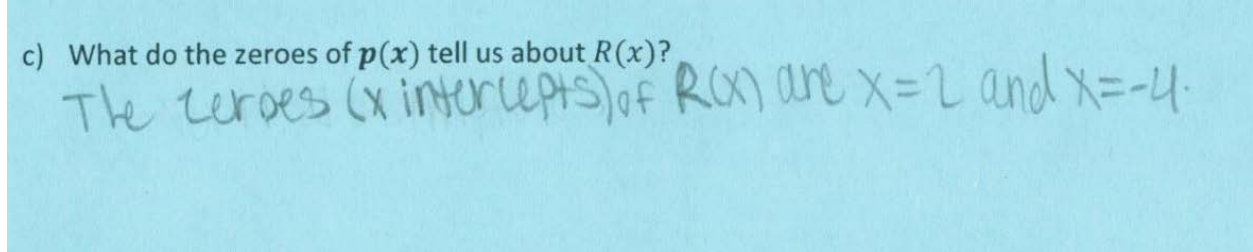 c) What do the zeroes of p(x) tell us about R(x)?
The zeroes (x intercepts) of R(x) are x=2 and x=-4.